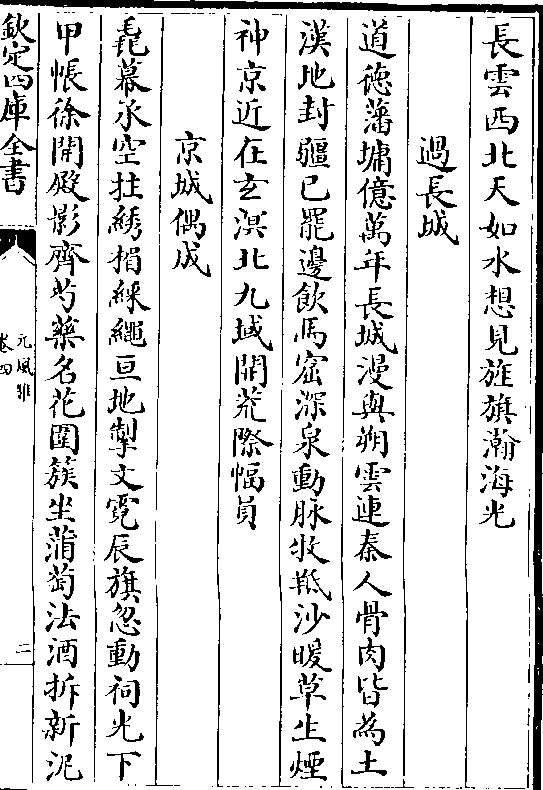 長雲西北天如水想見旌旗瀚海光
過長城
道徳藩墉億萬年長城漫與朔雲連秦人骨肉皆為土
漢地封疆已罷邊飲馬窟深泉動脉牧羝沙暖草生煙
神京近在玄溟北九域開荒際幅員
京城偶成
毳幕承空拄綉楣綵繩亘地掣文霓辰旗忽動祠光下
甲帳徐開殿影齊芍藥名花圍簇坐蒲萄法酒拆新泥
欽定四庫全書
元風雅
卷四
二